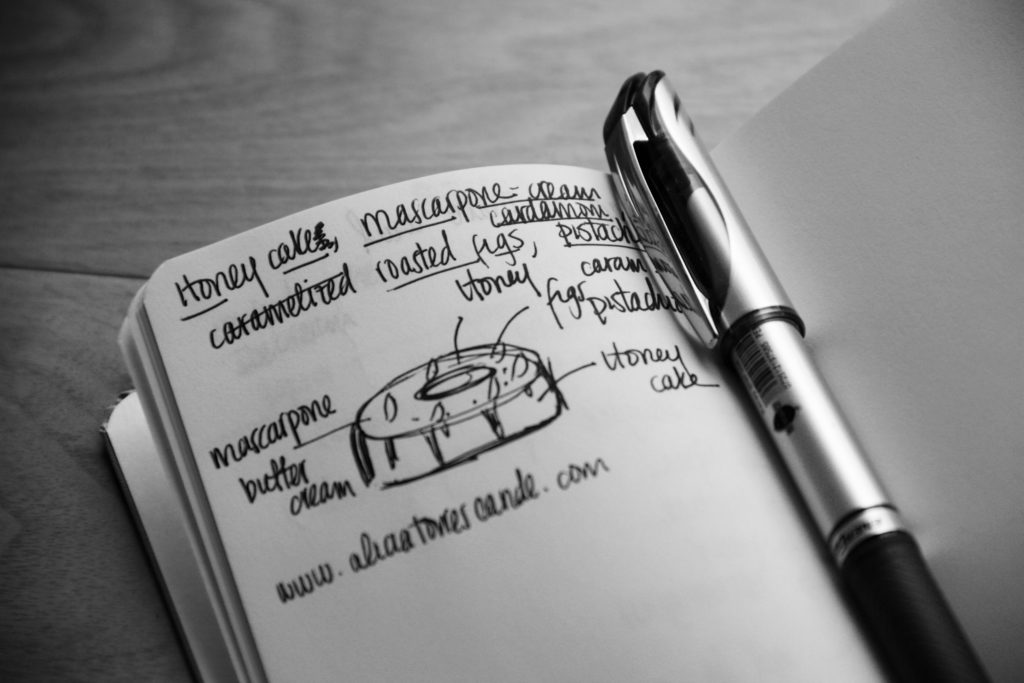 Honey cake, mascarpone-cream
cardamom
caramelized roasted figs, pistach
Honey caram
figs pistachio
Honey
cake
mascarpone
butter
cream
www.aliaatorrescande.com